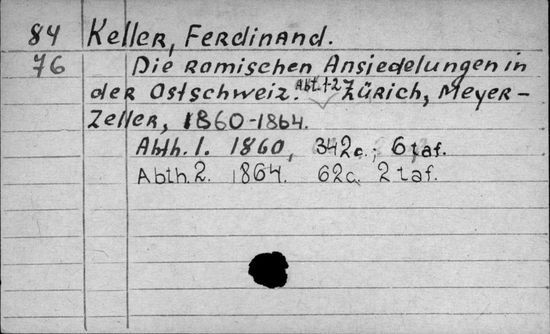 84 Keller, Ferdinand.
76 Die romischen Ansiedelungen in
der Ostschweiz. Abt. 1-2 Zürich, Meyer-
Zeller, 1860-1864.
Abth. 1. 1860, 342c.; 6 taf.
Abth. 2. 1864. 62c. 2 taf.